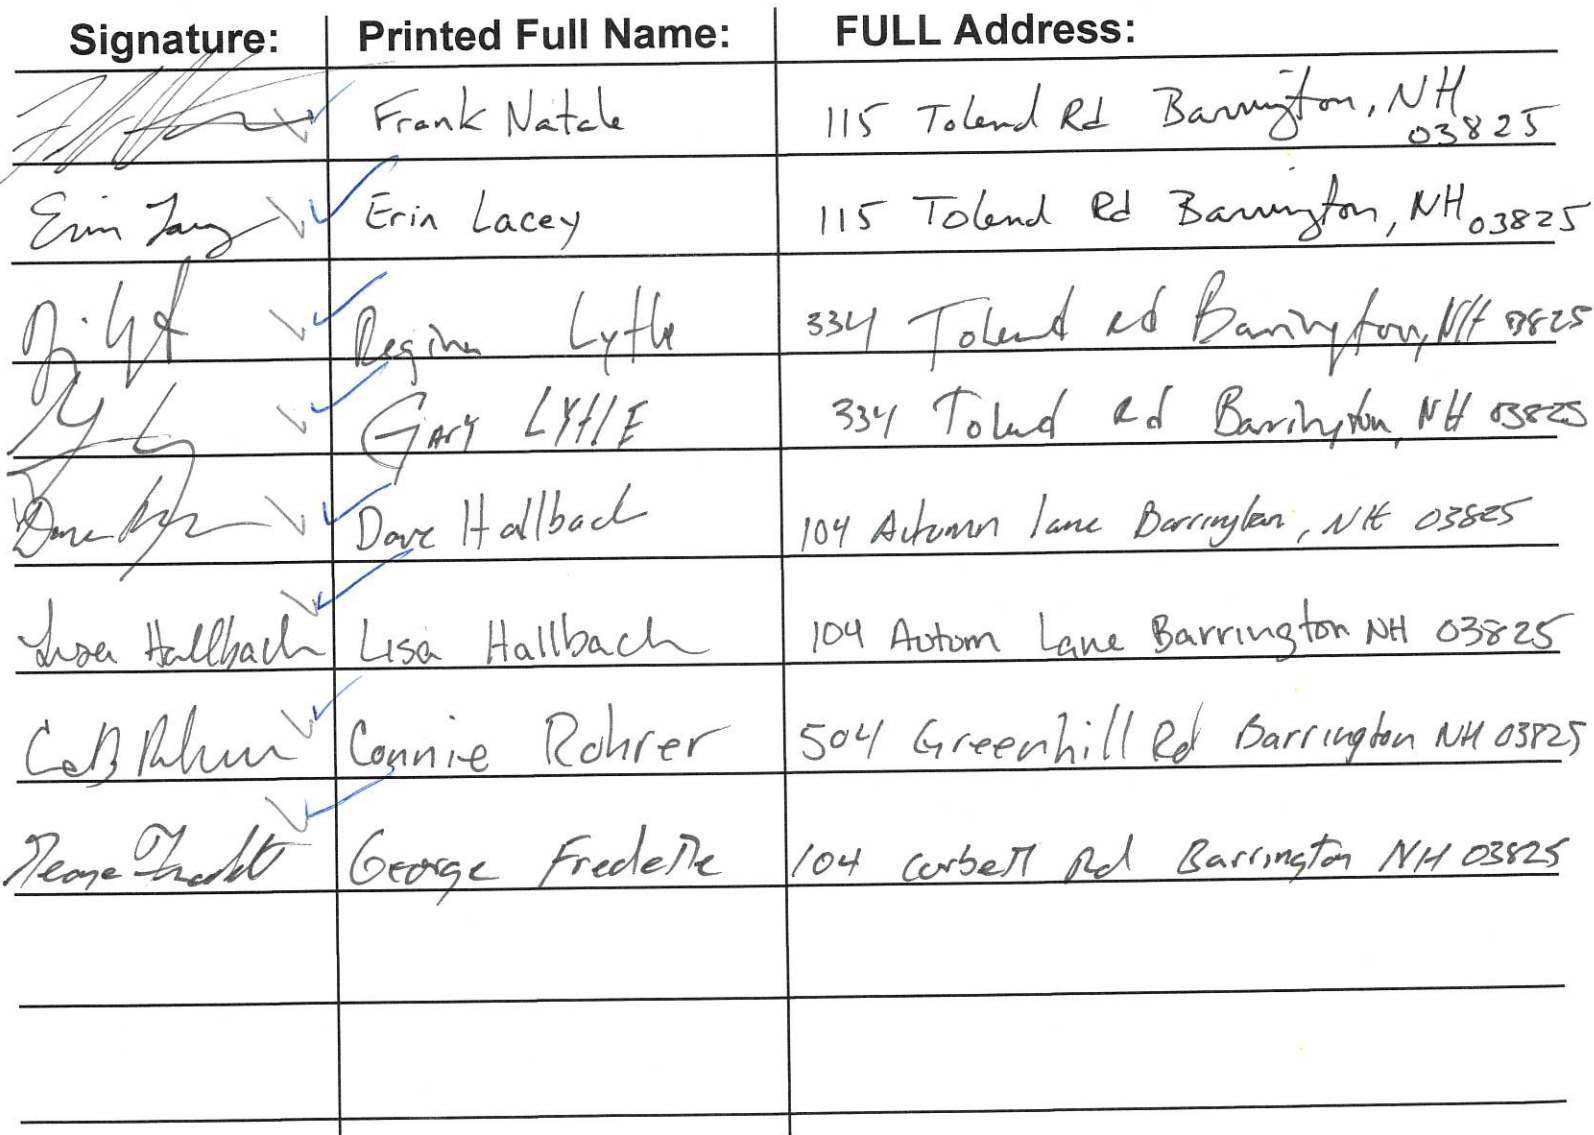 Signature: Printed Full Name: FULL Address:
Frank Natale 115 Tolend Rd Barrington, NH
03825
Erin Lacey Erin Lacey 115 Tolend Rd Barrington, NH 03825
Regina Lytle 334 Tolend Rd Barrington, NH 03825
Gary LYtlE 334 Tolend Rd Barrington, NH 03825
Dave Hallbach 104 Autumn lane Barrington, NH 03825
Lisa Hallbach Lisa Hallbach 104 Autom Lane Barrington NH 03825
Connie Rohrer 504 Greenhill Rd Barrington NH 03825
George Fredette George Fredette 104 Corbett Rd Barrington NH 03825